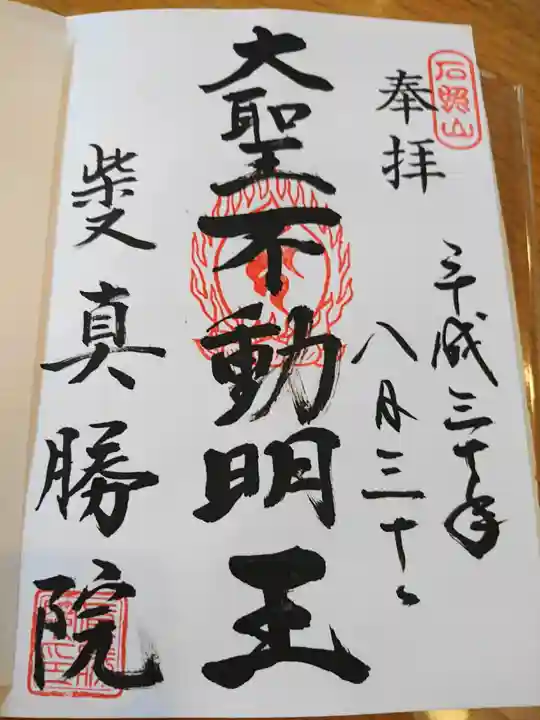 石照山
奉拝
平成三十年
八月三十日
大聖不動明王
柴又
真勝院